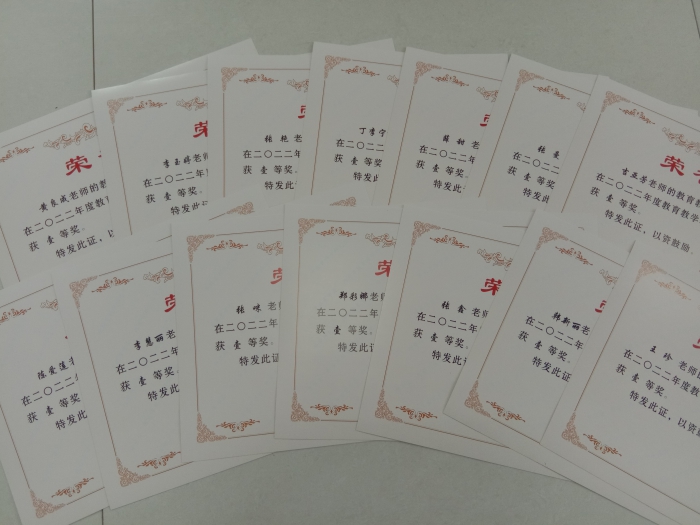 荣
黄良成老师的教育
在二〇二二年度教
获 壹 等奖.
特发此证,
李玉婷老师
在二〇二二年
获 壹 等奖
特发此证
张 艳 老
在二〇二二年
获 壹 等奖.
特发此
丁季宁
在二〇二二
获 壹 等奖
特发此
薛 甜 老
在二〇二二
获 壹 等奖
特发此
在二〇二二
获 壹 等
特发
荣
吉亚芳老师的教育教
在二〇二二年度教育教学
获 壹 等奖.
特发此证, 以资鼓励.
陈爱莲
在二〇二二年
获 壹 等奖
特发此
李慧丽老
在二〇二二年
获 壹 等奖
特发此证
荣
张 咪 老师
在二〇二二年
获 壹 等奖.
特发此证
荣
郑彩娜老师
在二〇二二年
获 壹 等奖.
特发此证
荣
张 鑫 老师
在二〇二二年
获 壹 等奖.
特发此证
韩新丽老
在二〇二二年
获 壹 等奖
特发此证
王 玲 老师的
在二〇二二年度教
获 壹 等奖.
特发此证, 以资